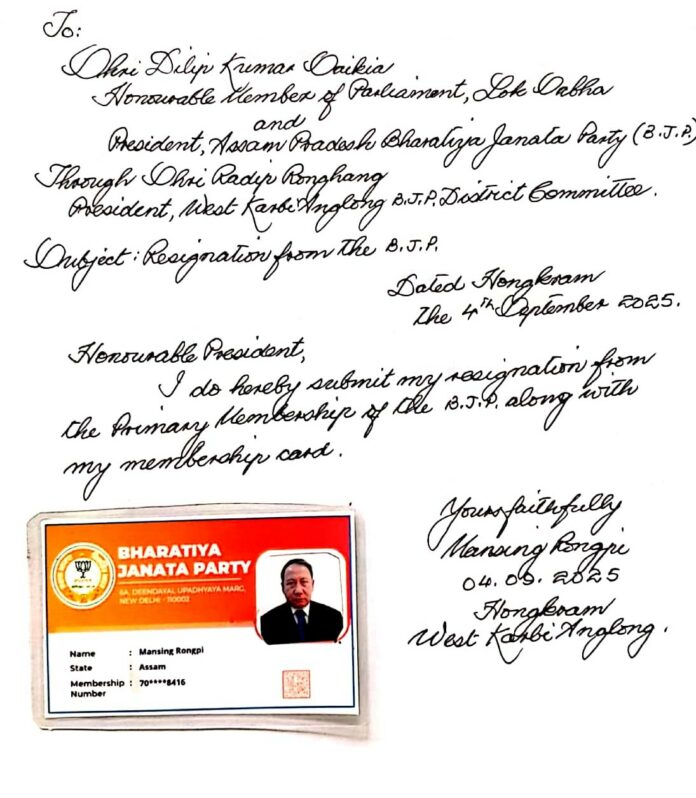 To:
Shri Dilip Kumar Saikia
Honourable Member of Parliament, Lok Sabha
and
President, Assam Pradesh Bharatiya Janata Party (B.J.P.)
Through Shri Radip Ronghang
President, West Karbi Anglong B.J.P. District Committee.
Subject: Resignation from the B.J.P.
Dated Hongkram
the 4th September 2025.
Honourable President,
I do hereby submit my resignation from
the Primary Membership of the B.J.P. along with
my membership card.
Yours faithfully
Mansing Rongpi
04.09.2025
Hongkram
West Karbi Anglong.
BHARATIYA
JANATA PARTY
6A, DEENDAYAL UPADHYAYA MARG,
NEW DELHI - 110002
Name : Mansing Rongpi
State : Assam
Membership : 70****8416
Number